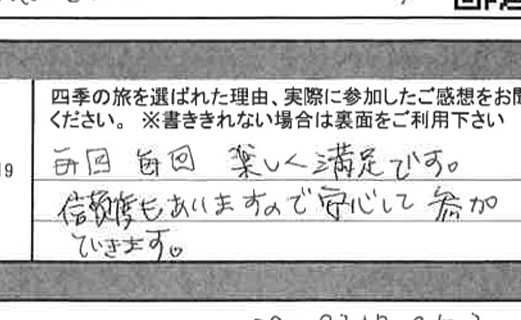 四季の旅を選ばれた理由、実際に参加したご感想をお
ください。 ※書ききれない場合は裏面をご利用下さい
19
毎回 毎回 楽しく満足です。
信頼度もありますので安心して 参加
できます。